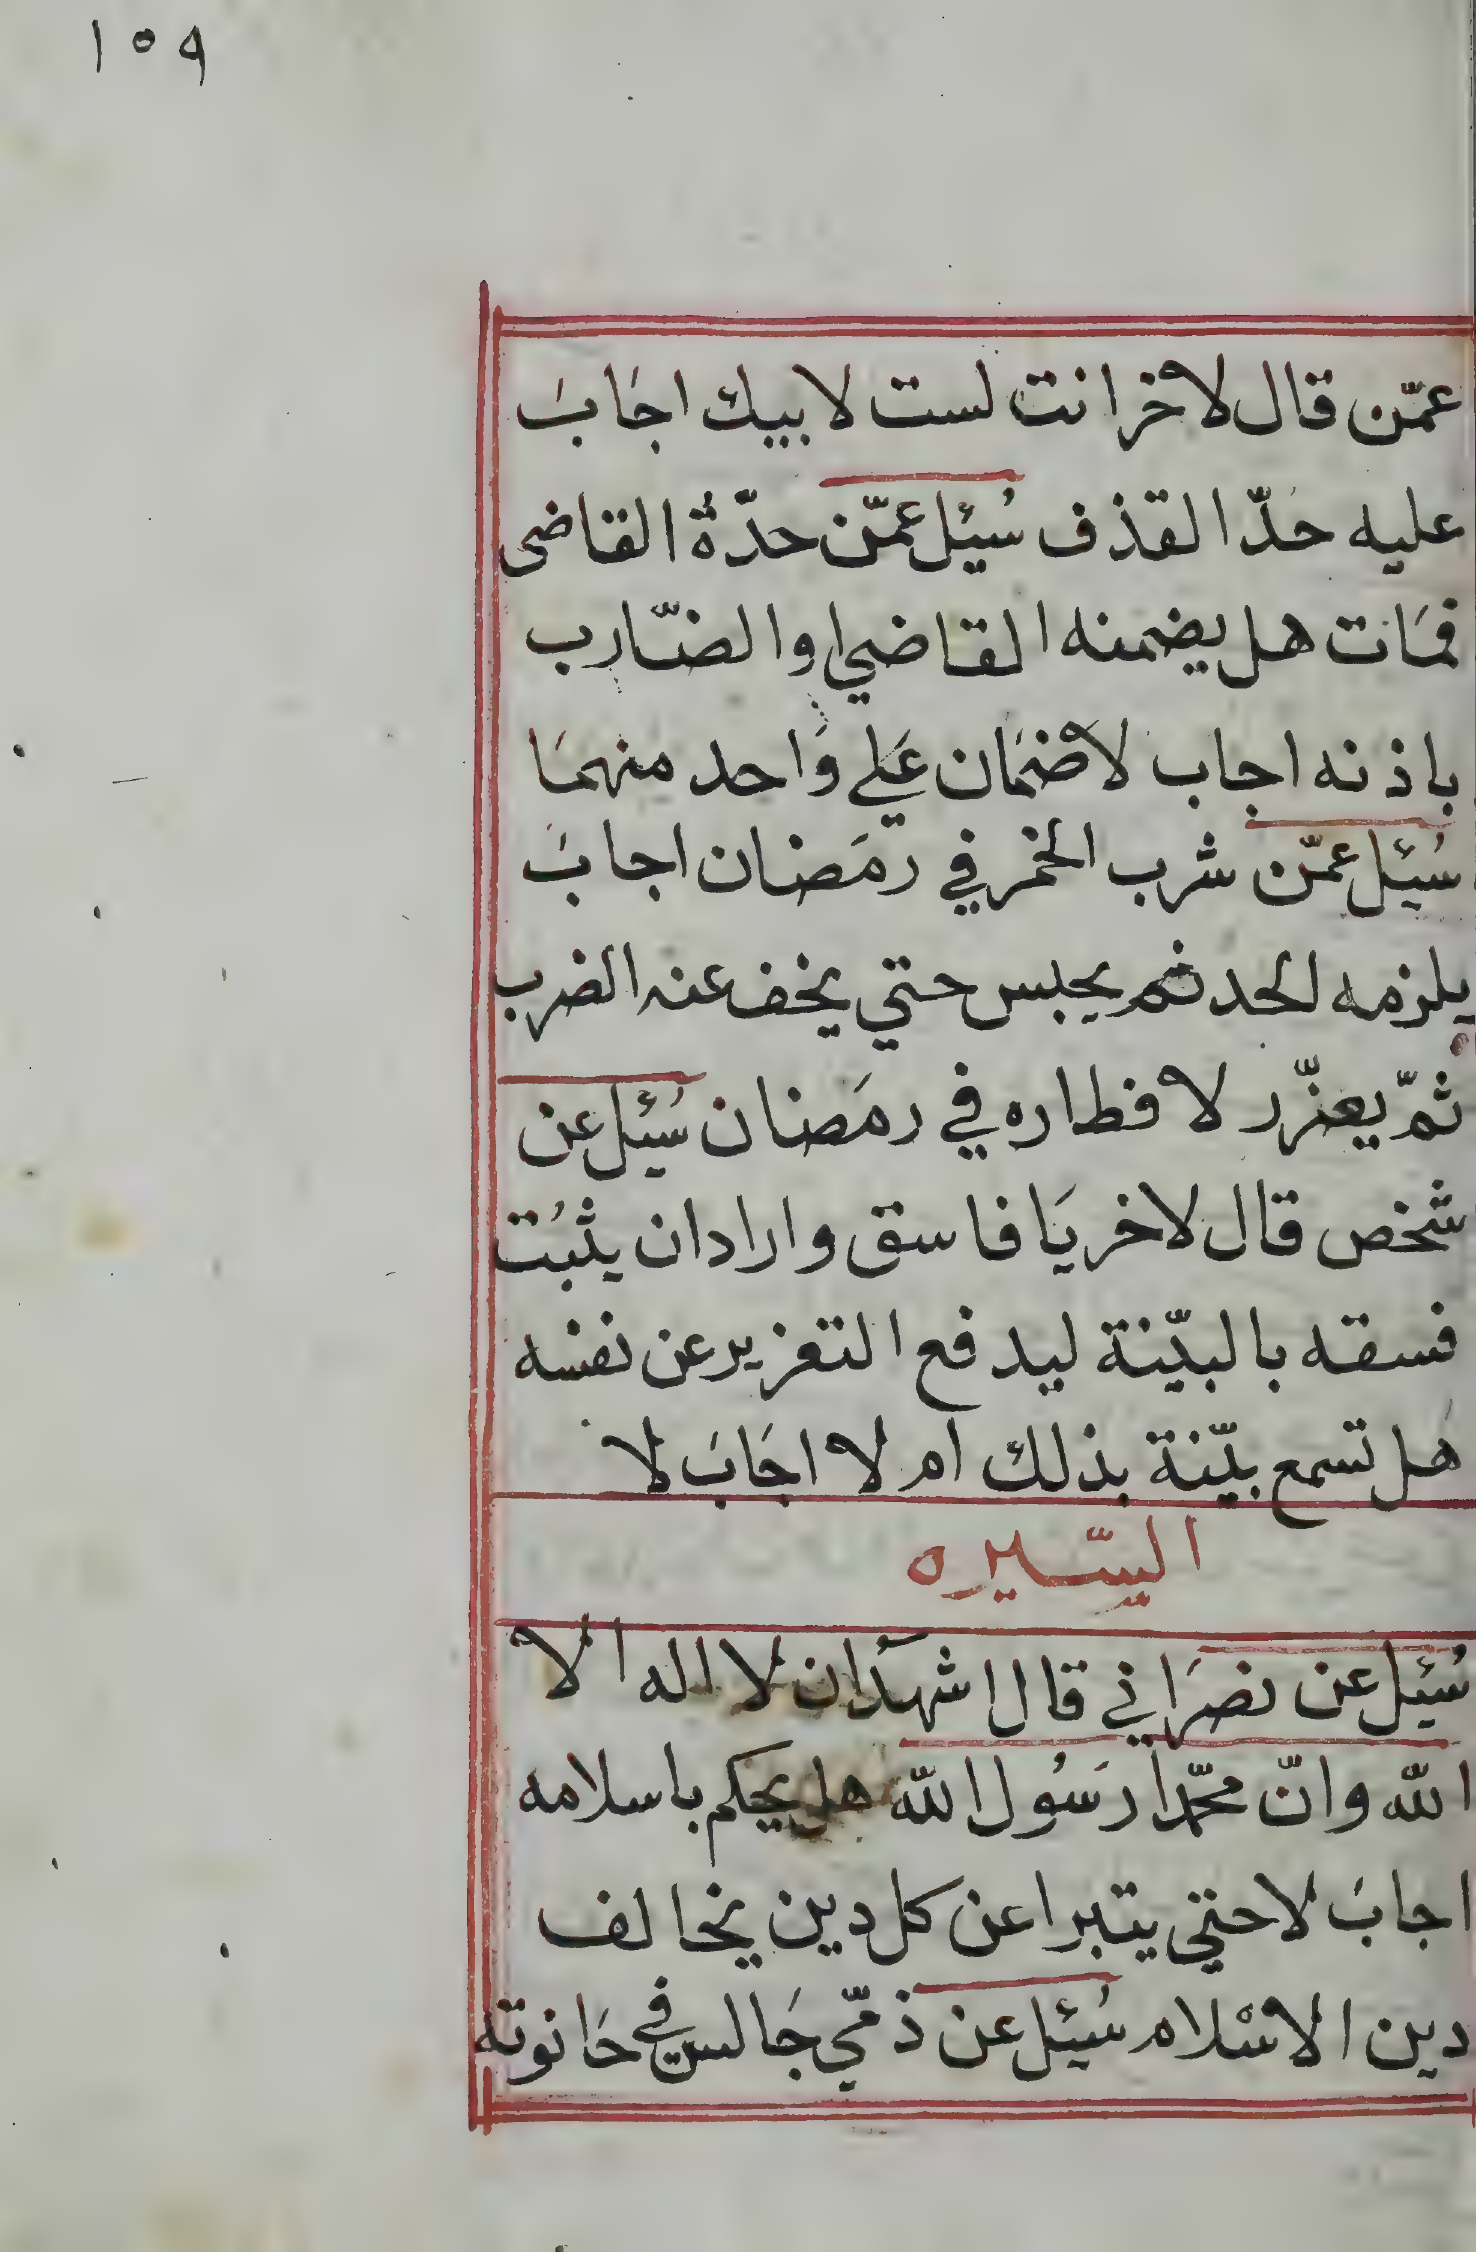 ١٥٩
عمّن قال لاخر انت لست لابيك اجَابَ
عليه حدّ القذف سُئِل عمّن حدّهُ القاضى
فمَات هل يضمنه القاضي او الضّارب
باذنه اجاب لاضمَان عَلي وَاحد منهمَا
سُئِل عمّن شرب الخمر في رمَضان اجابَ
يلزمه الحد ثم يحبس حتي يخف عنه الضرب
ثمّ يعزّر لافطاره في رمَضان سُئِل عن
شخص قال لاخر يَا فاسق واراد ان يثبُت
فسقه بالبيّنة ليدفع التعزير عن نفسه
هل تسمع بيّنة بذلك ام لا اجَابَ لا
السّيره
سُئِل عن نصرَاني قال اشهدَان لا اله الا
الله وانّ محمّدا رسُول الله هل يحكم باسلامه
اجابَ لا حتي يتبرا عن كل دين يخالف
دين الاسْلام سُئِل عن ذمّي جَالس في حَانوته